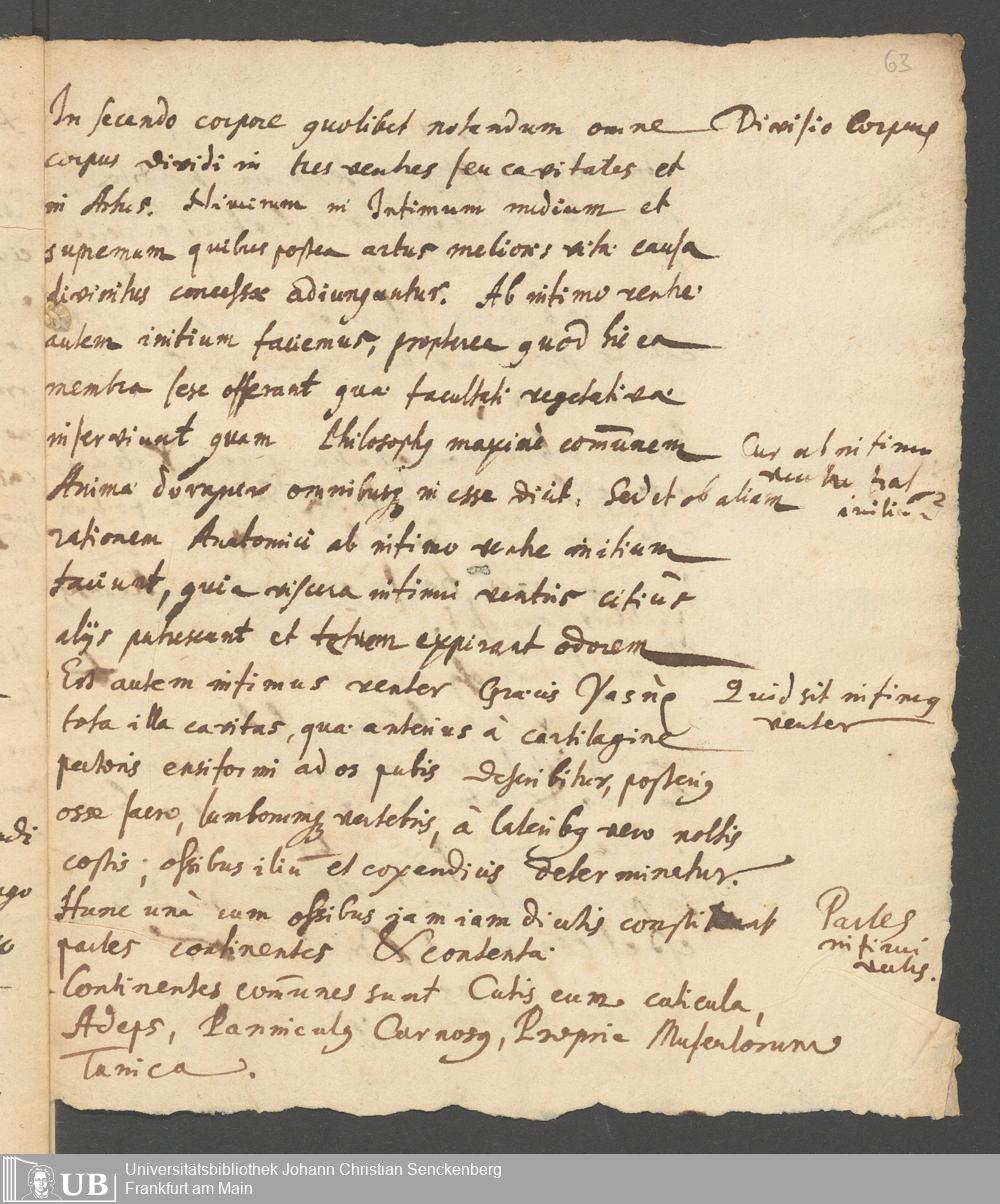 63
In secando corpore quolibet notandum omne
Divisio Corporis
corpus dividi in tres ventres seu cavitates et
in Artus. Nimirum in Infimum medium et
supremum quibus postea artus melioris vitæ causa
divinitus concessæ adiunguntur. Ab infimo ventre
autem initium faciemus, propterea quod hic ea
membra sese offerant quæ facultati vegetativæ
inserviunt quam Philosophus maximè com̄unem
Cur ab infimo
ventre fiat
initium?
Animæ omnibusq; in esse dicit. Sed et ob aliam
rationem Anatomici ab infimo ventre initium
faciunt, quia viscera infimi ventris citiùs
alijs putrescunt et tetrum expirant odorem
Est autem infimus venter Græcis γαστὴρ
Quid sit infimus
venter
tota illa cavitas, quæ anterius à cartilagine
pectoris ensiformi ad os pubis describitur, posterius
osse sacro, lumborumq; vertebris, à lateribus vero nothis
costis, ossibus iliū et coxendicis determinatur.
Hunc unà cum ossibus jam iam dictis constituunt
Partes
infimi
ventris.
partes continentes & contentæ
Continentes com̄unes sunt Cutis cum cuticula,
Adeps, Panniculus Carnosus, Propriæ Musculorum
Tunica.
UB Universitätsbibliothek Johann Christian Senckenberg
Frankfurt am Main